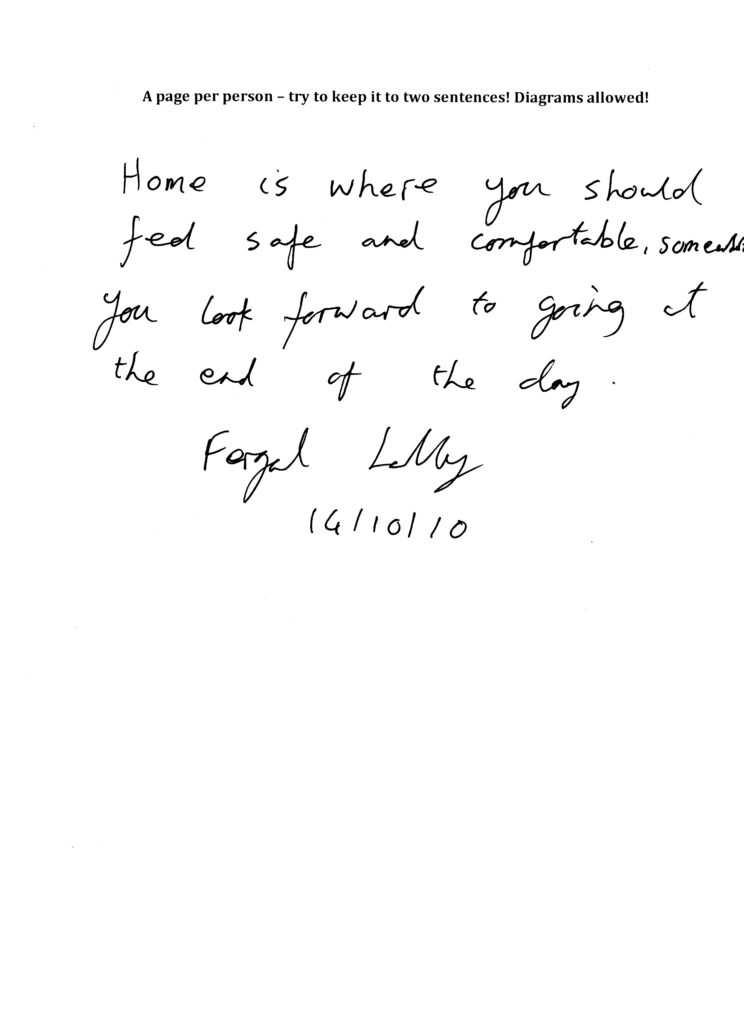 A page per person – try to keep it to two sentences! Diagrams allowed!
Home is where you should
feel safe and comfortable,
you look forward to going at
the end of the day.
Fergal
14/10/10